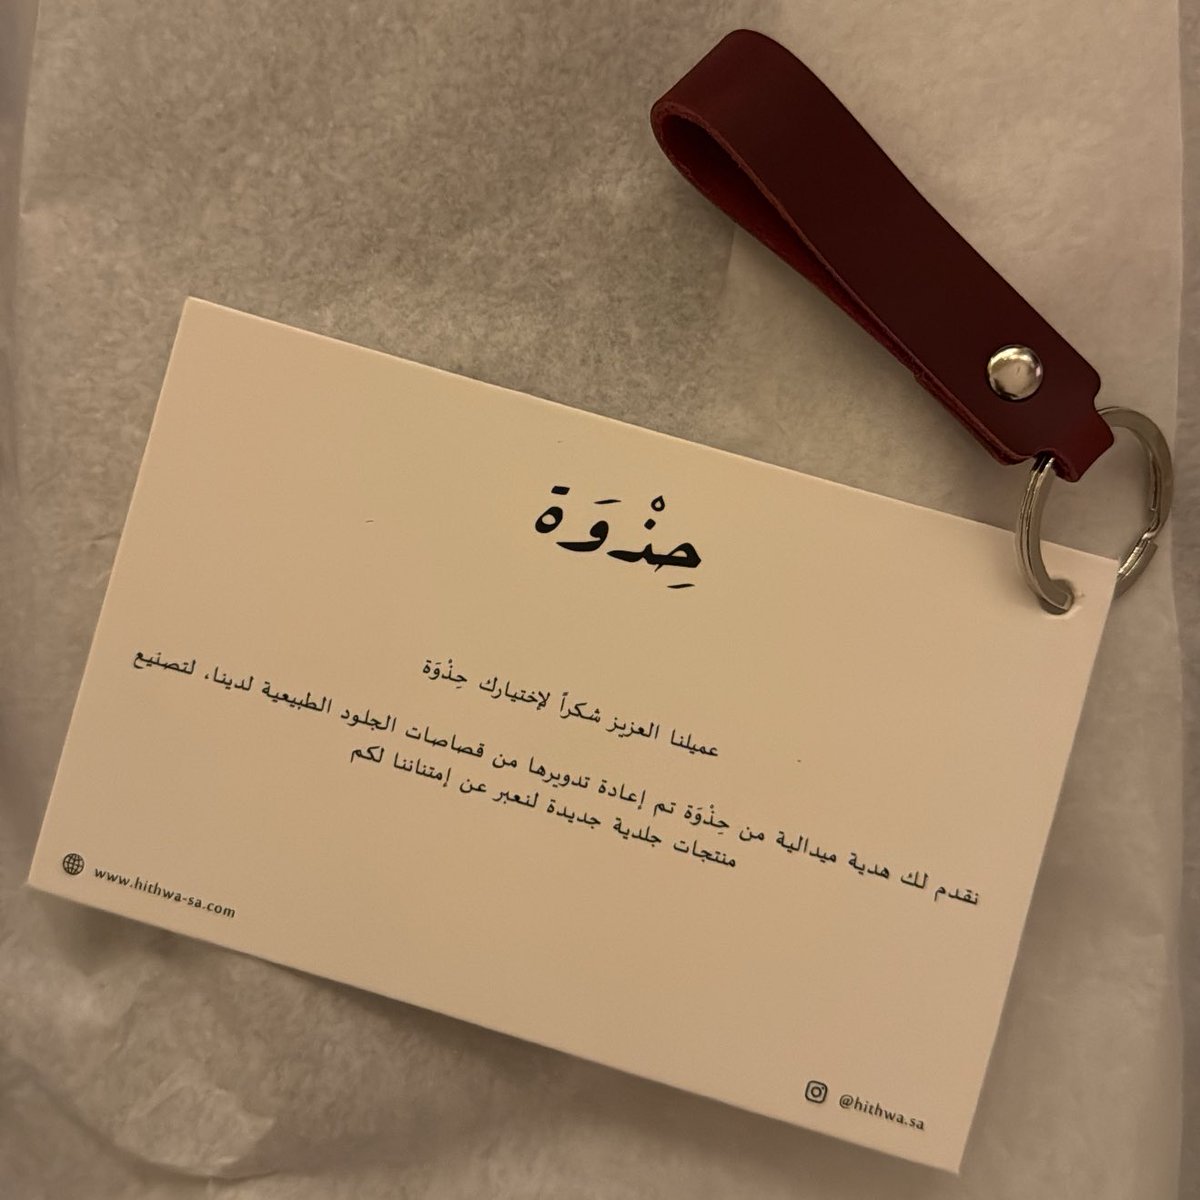 حِذْوَة
عميلنا العزيز شكراً لإختيارك حِذْوَة
نقدم لك هدية ميدالية من حِذْوَة تم إعادة تدويرها من قصاصات الجلود الطبيعية لدينا، لتصنيع
منتجات جلدية جديدة لنعبر عن إمتناننا لكم
www.hithwa-sa.com
@hithwa.sa